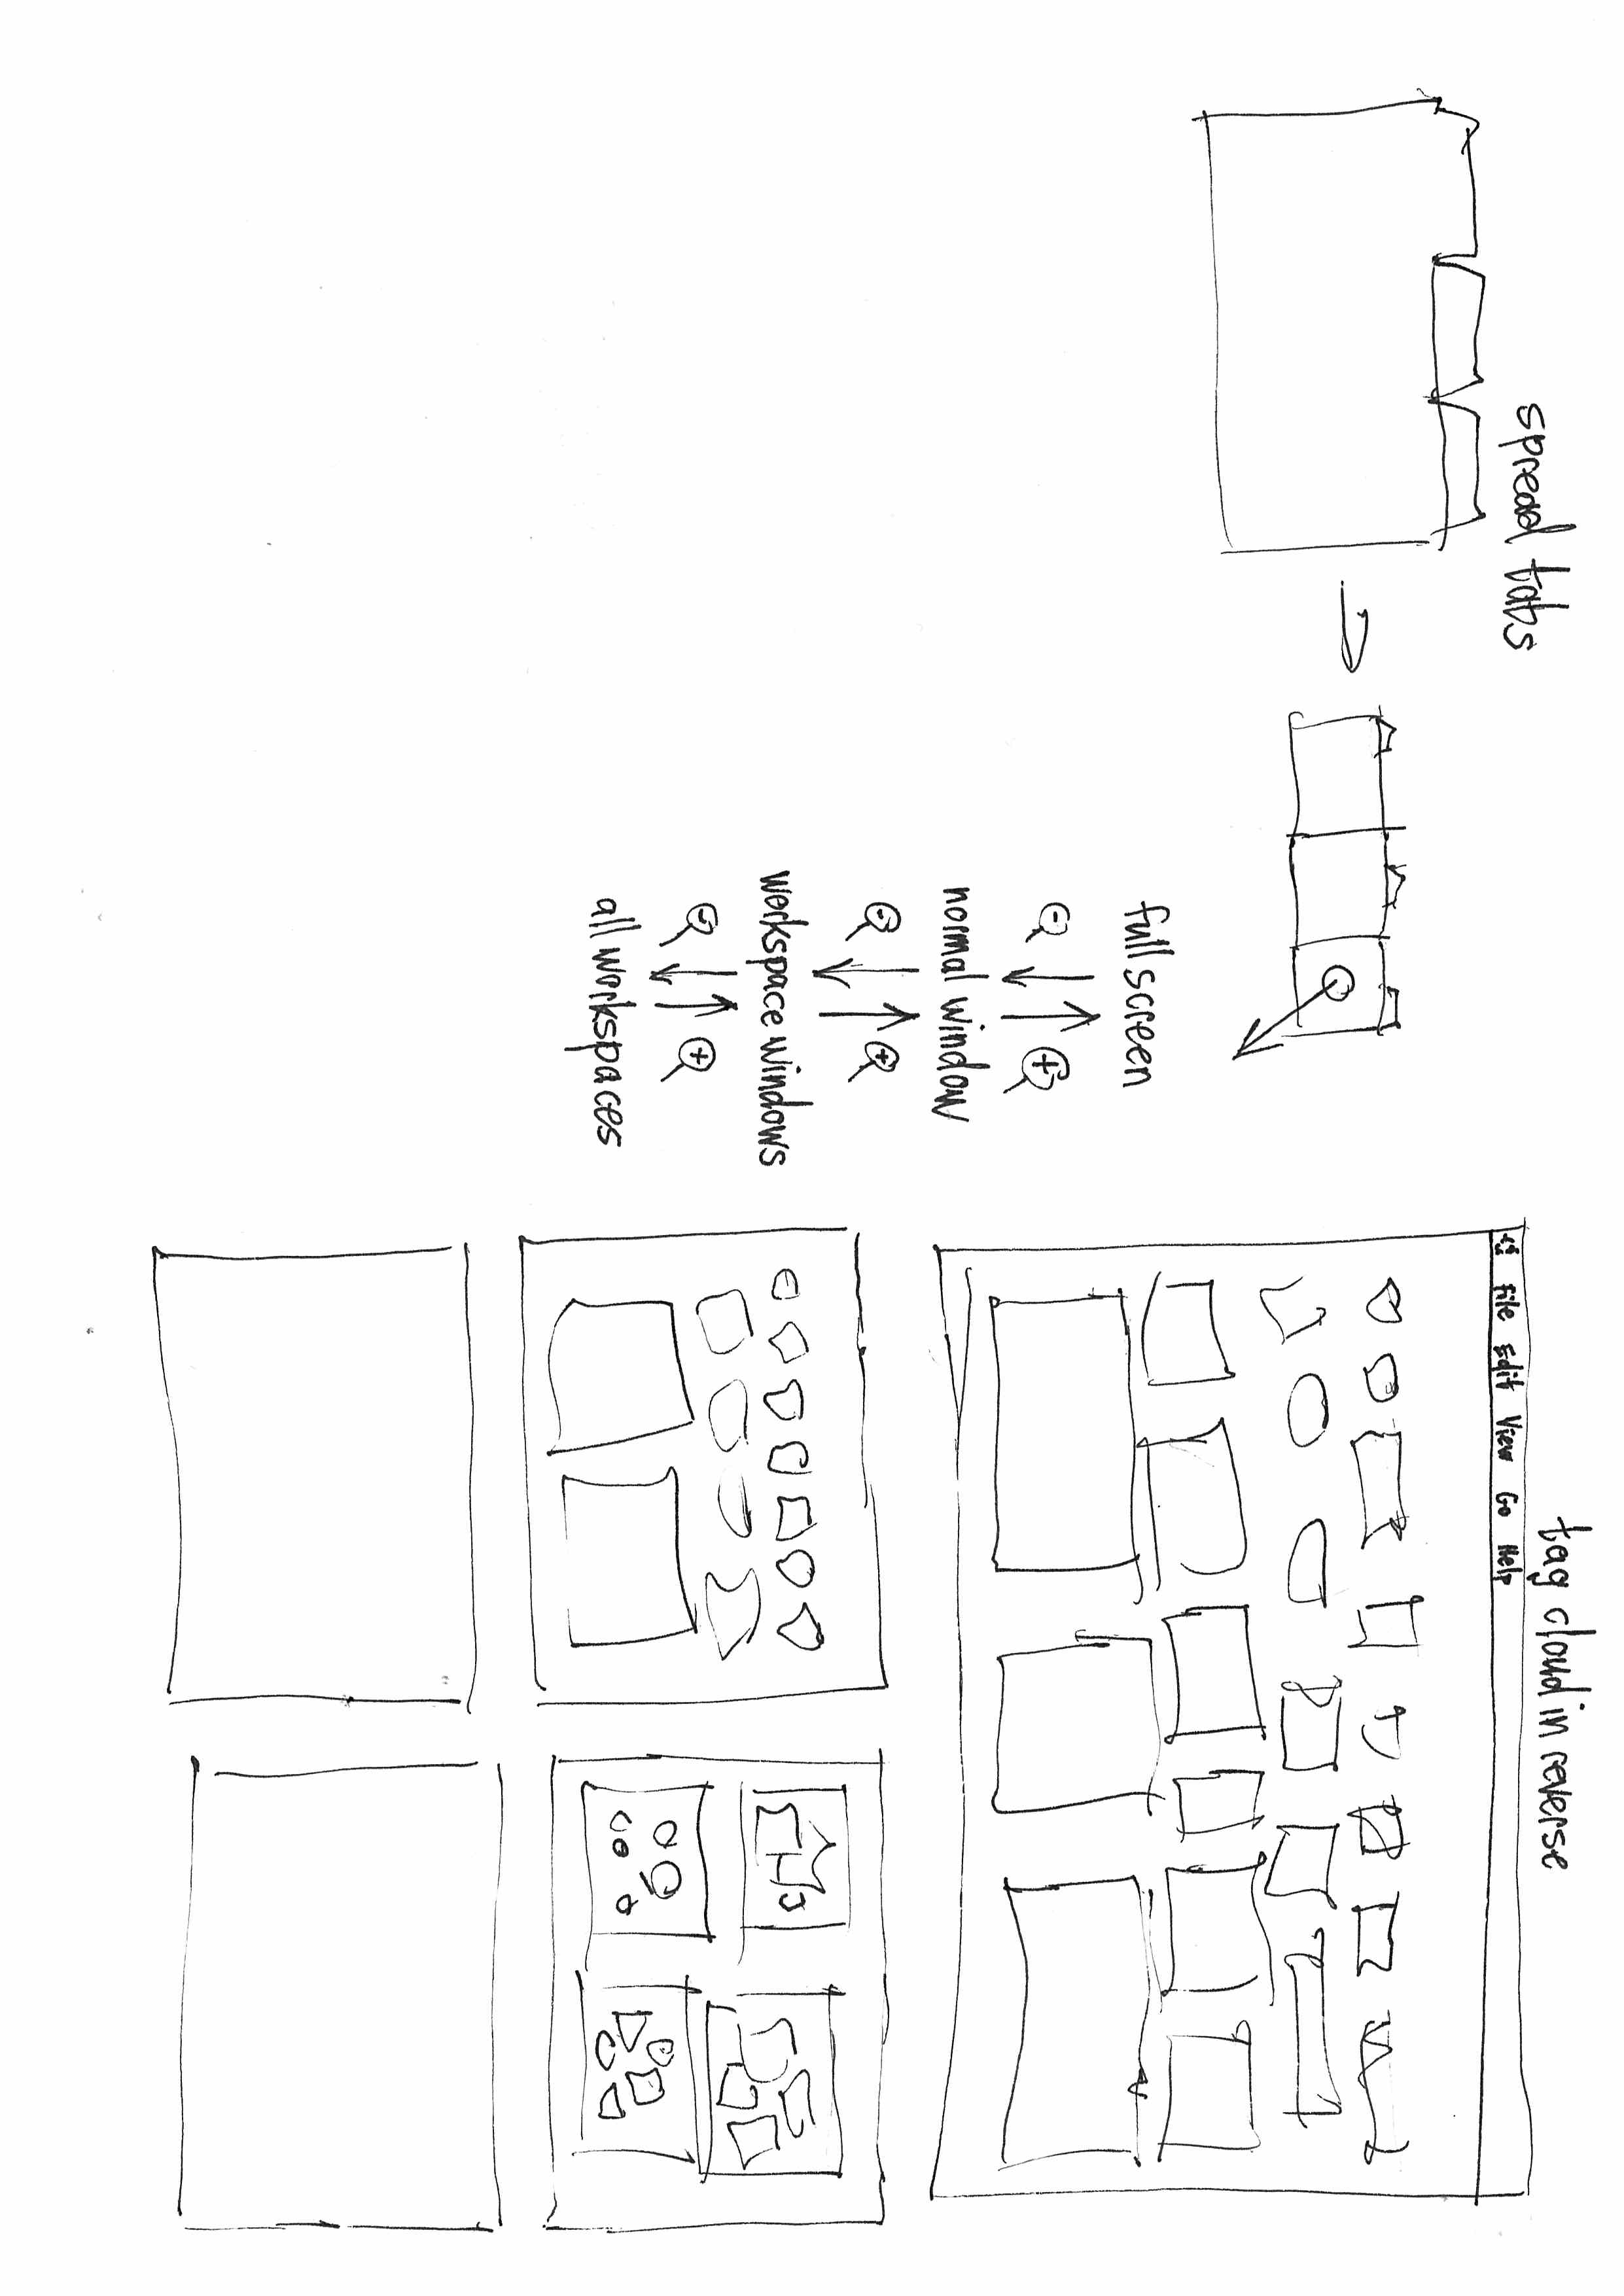 spread tabs
full screen
normal window
workspace windows
all workspaces
tag cloud in reverse
File Edit View Go Help